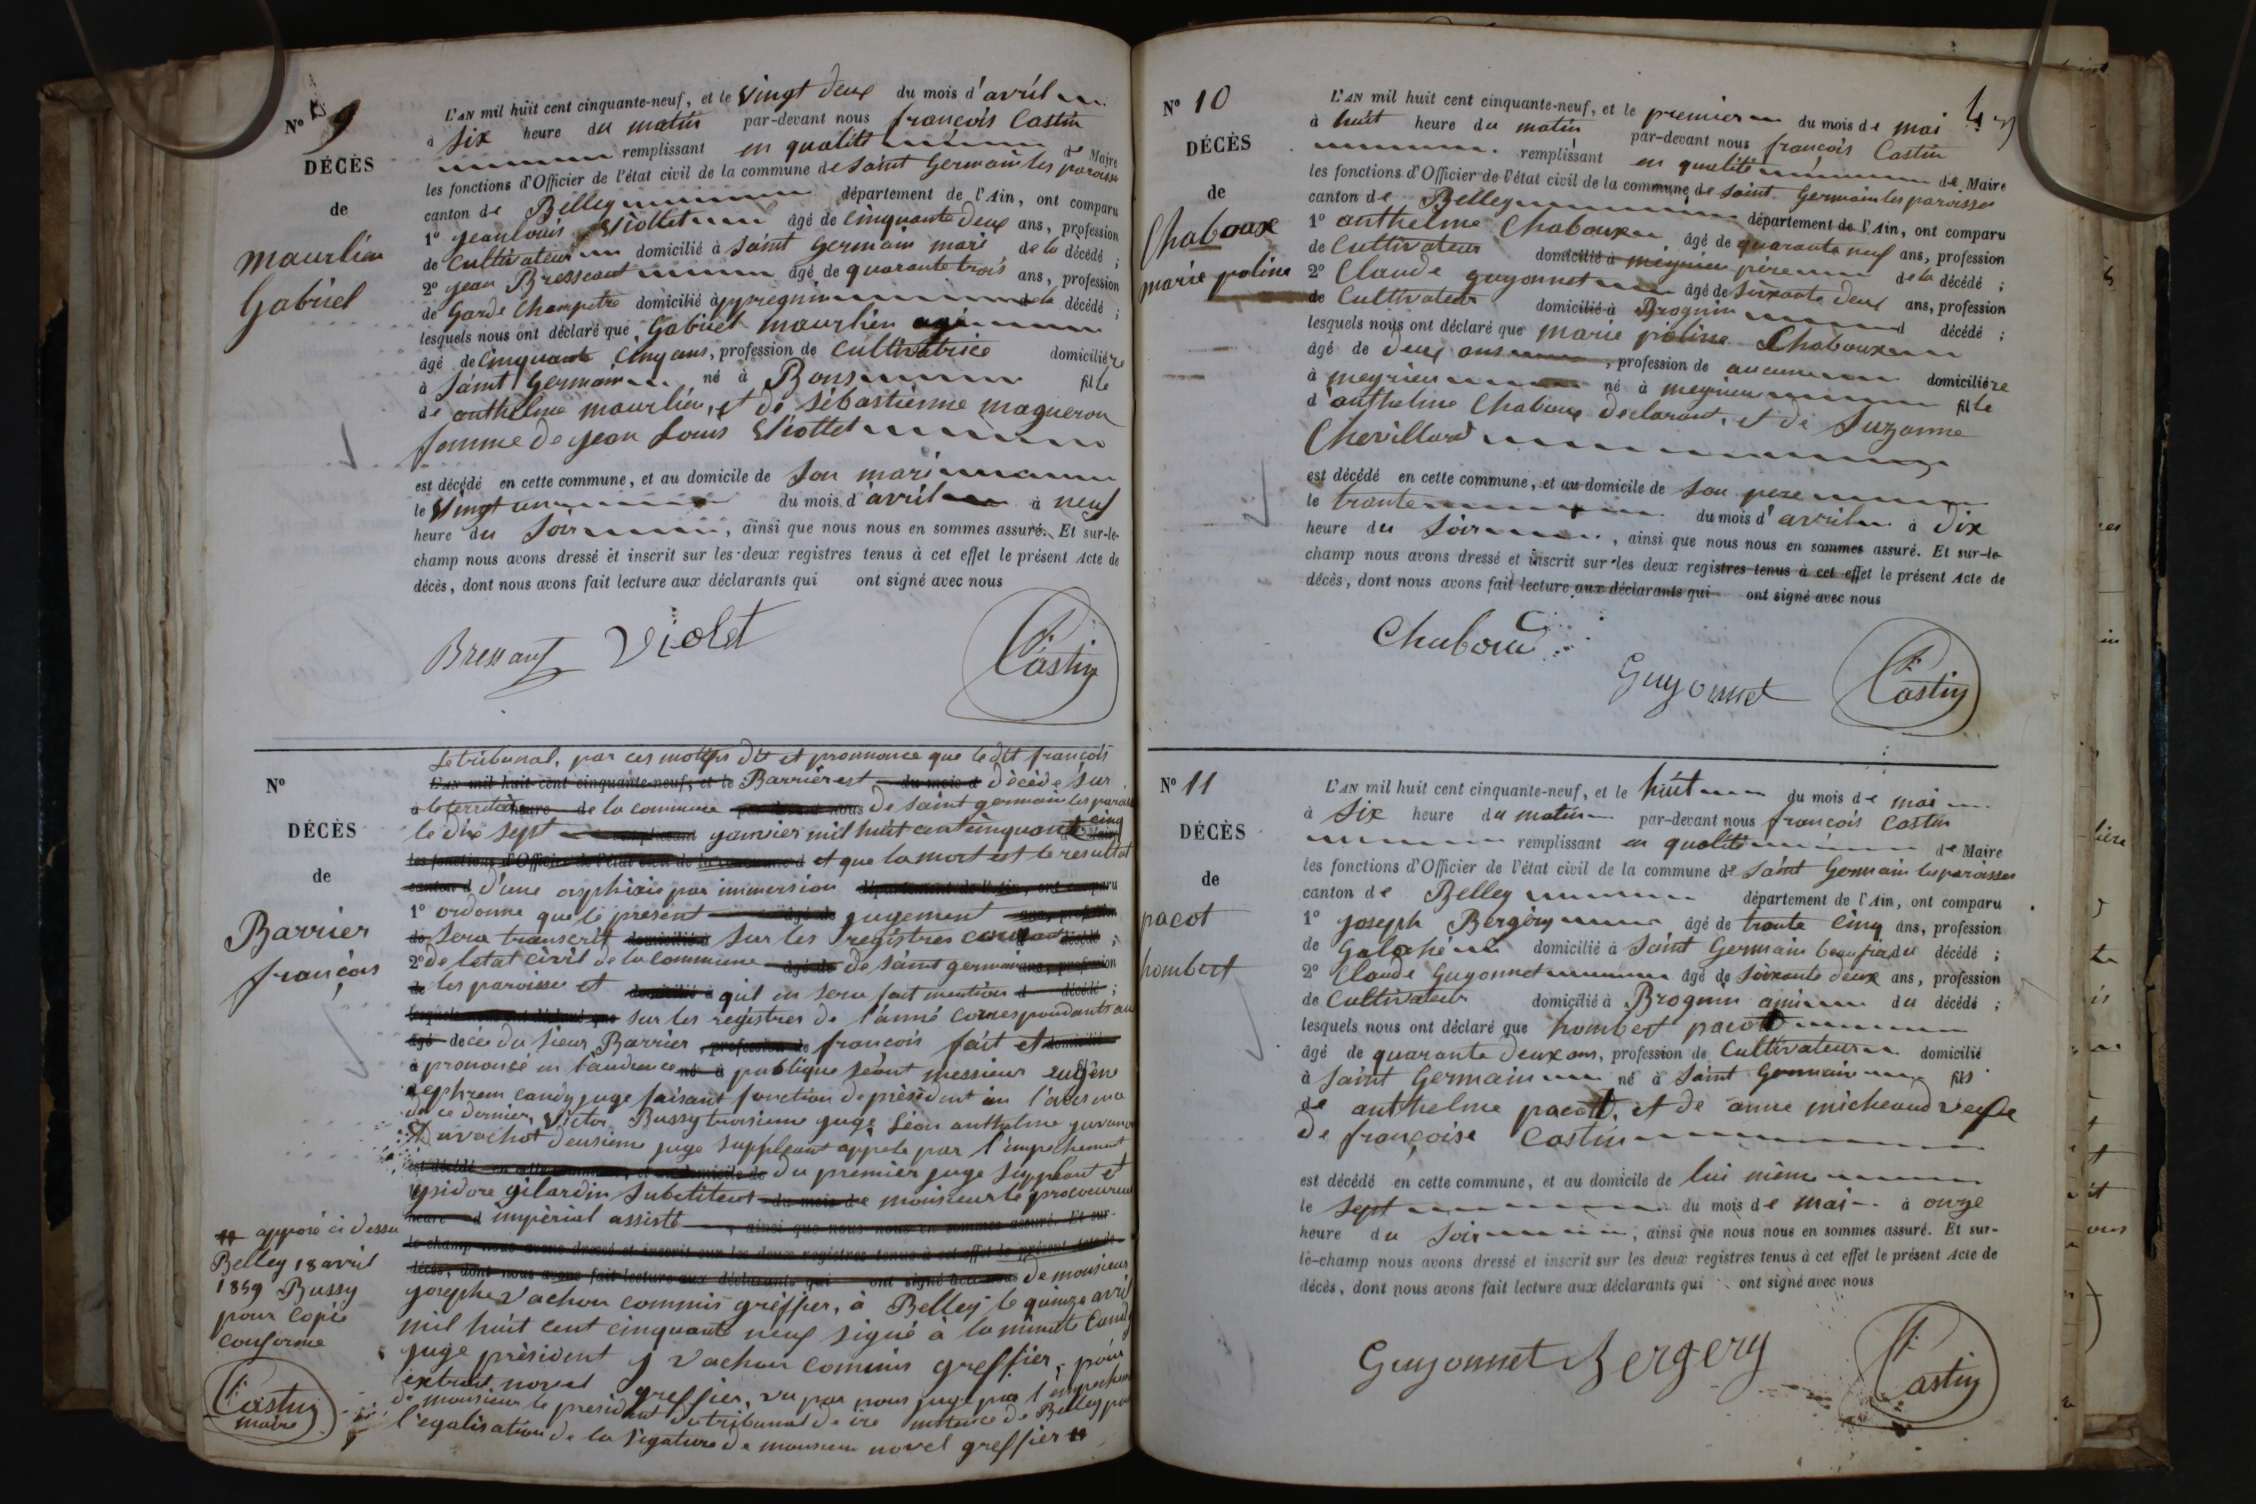 N° 9
DÉCÈS
de
maurlien
Gabriel
L'AN mil huit cent cinquante-neuf, et le vingt deux du mois d'avril
à six heure du matin par-devant nous françois Castin
remplissant en qualité de Maire
les fonctions d'Officier de l'état civil de la commune de saint Germain les paroisses
canton de Belley département de l'Ain, ont comparu
1° jean louis Viollet âgé de cinquante deux ans, profession
de cultivateur domicilié à saint Germain mari de la décédé ;
2° jean Bressant âgé de quarante trois ans, profession
de Garde Champetre domicilié à pyregnin de la décédé ;
lesquels nous ont déclaré que Gabriel maurlien agé
âgé de cinquante cinq ans, profession de cultivatrice domiciliére
à saint Germain né à Bons fille
de anthelme maurlien, et de sébastienne magneron
femme de jean Louis Viollet
est décédé en cette commune, et au domicile de son mari
le vingt un du mois d'avril à neuf
heure du soir, ainsi que nous nous en sommes assuré. Et sur-le-
champ nous avons dressé et inscrit sur les deux registres tenus à cet effet le présent Acte de
décès, dont nous avons fait lecture aux déclarants qui ont signé avec nous
Bressant Violet Castin
N°
DÉCÈS
de
Barrier
françois
Le tribunal, par ces motifs dit et pronnonce que le dit françois
L'AN mil huit cent cinquante-neuf, et le Barrier est du mois d décédé sur
à le territoire heure de la commune par-devant nous de saint germain les paroisses
le dix sept remplissant janvier mil huit cent cinquante cinq
les fonctions d'Officier de l'état civil de la commune d et que la mort est le resultat
canton d d'une asphixie par immersion département de l'Ain, ont comparu
1° ordonne que le présent âgé de jugement ans, profession
de sera transcrit domicilié à sur les registres courant décédé ;
2° de letat civil de la commune âgé de de saint germain ans, profession
de les paroisses et domicilié à qu'il en sera fait mention d décédé ;
lesquels nous ont déclaré que sur les registres de l'anné correspondants au
âgé décés du sieur Barrier, profession de françois fait et domicilié
à prononcé en l'audience né à publique séant messieur eugène
ephrem candy juge faisant fonction de président en l'absence
de ce dernier, Victor Bussy troisieme juge Léon anthelme
Duvachot deusieme juge suppléant appelé par l'empechement
est décédé en cette commune, et au domicile de du premier juge suppléant et
ysidore gilardin substitent du mois de monsieur le procoureur
heure d impérial assisté, ainsi que nous nous en sommes assuré. Et sur-
le-champ nous avons dressé et inscrit sur les deux registres tenus à cet effet le présent Acte de
décès, dont nous avons fait lecture aux déclarants qui ont signé avec nous de monsieur
josephe Vachon commis gréffier, à Belley le quinze avril
mil huit cent cinquante neuf signé à la minute Candy
juge président J Vachon commis greffier, pour
extrait novel greffier, vu par nous juge par l'empechement
de monsieur le président du tribunal de ire instance de Belley pour
l'égalisation de la signature de monsieur novel greffier #
# apposé ci dessu
Belley 18 avril
1859 Bussy
pour copie
conforme
Castin
maire
N° 10
DÉCÈS
de
Chaboux
marie poline
L'AN mil huit cent cinquante-neuf, et le premier du mois de mai
à huit heure du matin par-devant nous françois Castin
remplissant en qualité de Maire
les fonctions d'Officier de l'état civil de la commune de saint Germain les paroisses
canton de Belley département de l'Ain, ont comparu
1° anthelme Chaboux, âgé de quarante neuf ans, profession
de Cultivateur domicilié à meyrieu père de la décédé ;
2° Claude guyonnet âgé de soixante deux ans, profession
de Cultivateur domicilié à Brognin d décédé ;
lesquels nous ont déclaré que marie poline Chaboux
âgé de deux ans, profession de aucune domiciliére
à meyrieu né à meyrieu fille
d'anthelme Chaboux declarant, et de Suzanne
Chevillard
est décédé en cette commune, et au domicile de son pere
le trante du mois d'avril à dix
heure du soir, ainsi que nous nous en sommes assuré. Et sur-le-
champ nous avons dressé et inscrit sur les deux registres tenus à cet effet le présent Acte de
décès, dont nous avons fait lecture aux déclarants qui ont signé avec nous
Chaboud
Guyonnet Castin
N° 11
DÉCÈS
de
pacot
hombert
L'AN mil huit cent cinquante-neuf, et le huit du mois de mai
à six heure du matin par-devant nous françois Castin
remplissant en qualité de Maire
les fonctions d'Officier de l'état civil de la commune de saint Germain les paroisses
canton de Belley département de l'Ain, ont comparu
1° joseph Bergery âgé de trante cinq ans, profession
de Galoché domicilié à saint Germain beau frere du décédé ;
2° Claude Guyonnet âgé de soixante deux ans, profession
de Cultivateur domicilié à Brognin ami du décédé ;
lesquels nous ont déclaré que hombert pacot
âgé de quarante deux ans, profession de Cultivateur domicilié
à saint Germain né à saint Germain fils
de anthelme pacot, et de anne micheaud veufve
de françoise Castin
est décédé en cette commune, et au domicile de lui même
le sept du mois de mai à onze
heure du soir, ainsi que nous nous en sommes assuré. Et sur-
le-champ nous avons dressé et inscrit sur les deux registres tenus à cet effet le présent Acte de
décès, dont nous avons fait lecture aux déclarants qui ont signé avec nous
Guyonnet Bergery Castin